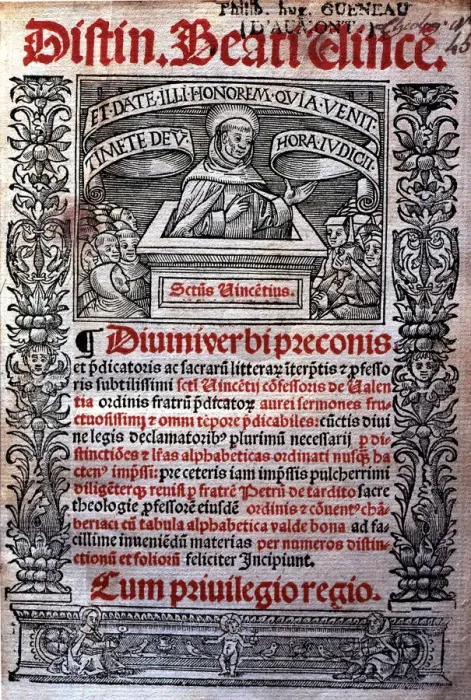 Philib. hug. GUENEAU
(D'AUMONT.)
Distin. Beati Uincē.
ET·DATE·ILLI·HONOREM·QVIA·VENIT·
TIMETE DEV̄·
HORA·IVDICII·
Sctūs Uincētius.
¶ Diuini verbi preconis
et p̄dicatoris ac sacrarū litteraꝝ īterp̄tis ⁊ ꝓfesso
ris subtilissimi scti Uincētij cōfessoris de Ualen
tia ordinis fratrū p̄dicatoꝝ aurei sermones fru-
ctuosissimi ⁊ omni tēpore p̄dicabiles: cūctis diui
ne legis declamatoribꝰ plurimū necessarij ꝑ di-
stinctiōes ⁊ lr̄as alphabeticas ordinati nusꝙ̄ ha
ctenꝰ imp̄ssi: pre ceteris iam imp̄ssis pulcherrimi
diligēterqꝫ reuisi ꝑ fratrē Petrū de tardito sacre
theologie ꝓfessorē eiusdē ordinis ⁊ cōuentꝰ chā-
beriaci cū tabula alphabetica valde bona ad fa-
cillime inueniēdū materias per numeros distin-
ctionū et foliorū feliciter Incipiunt.
Cum priuilegio regio.